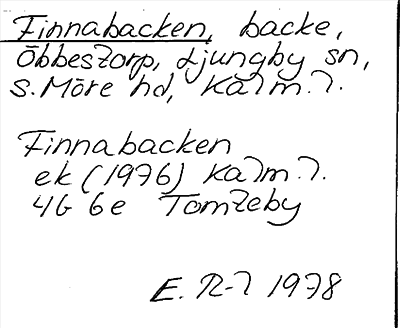 Finnabacken, backe,
Öbbestorp, Ljungby sn,
S. Möre hd, Kalm. l.
Finnabacken
ek (1976) Kalm. l.
4G 6e Tomteby
E. R-l 1978